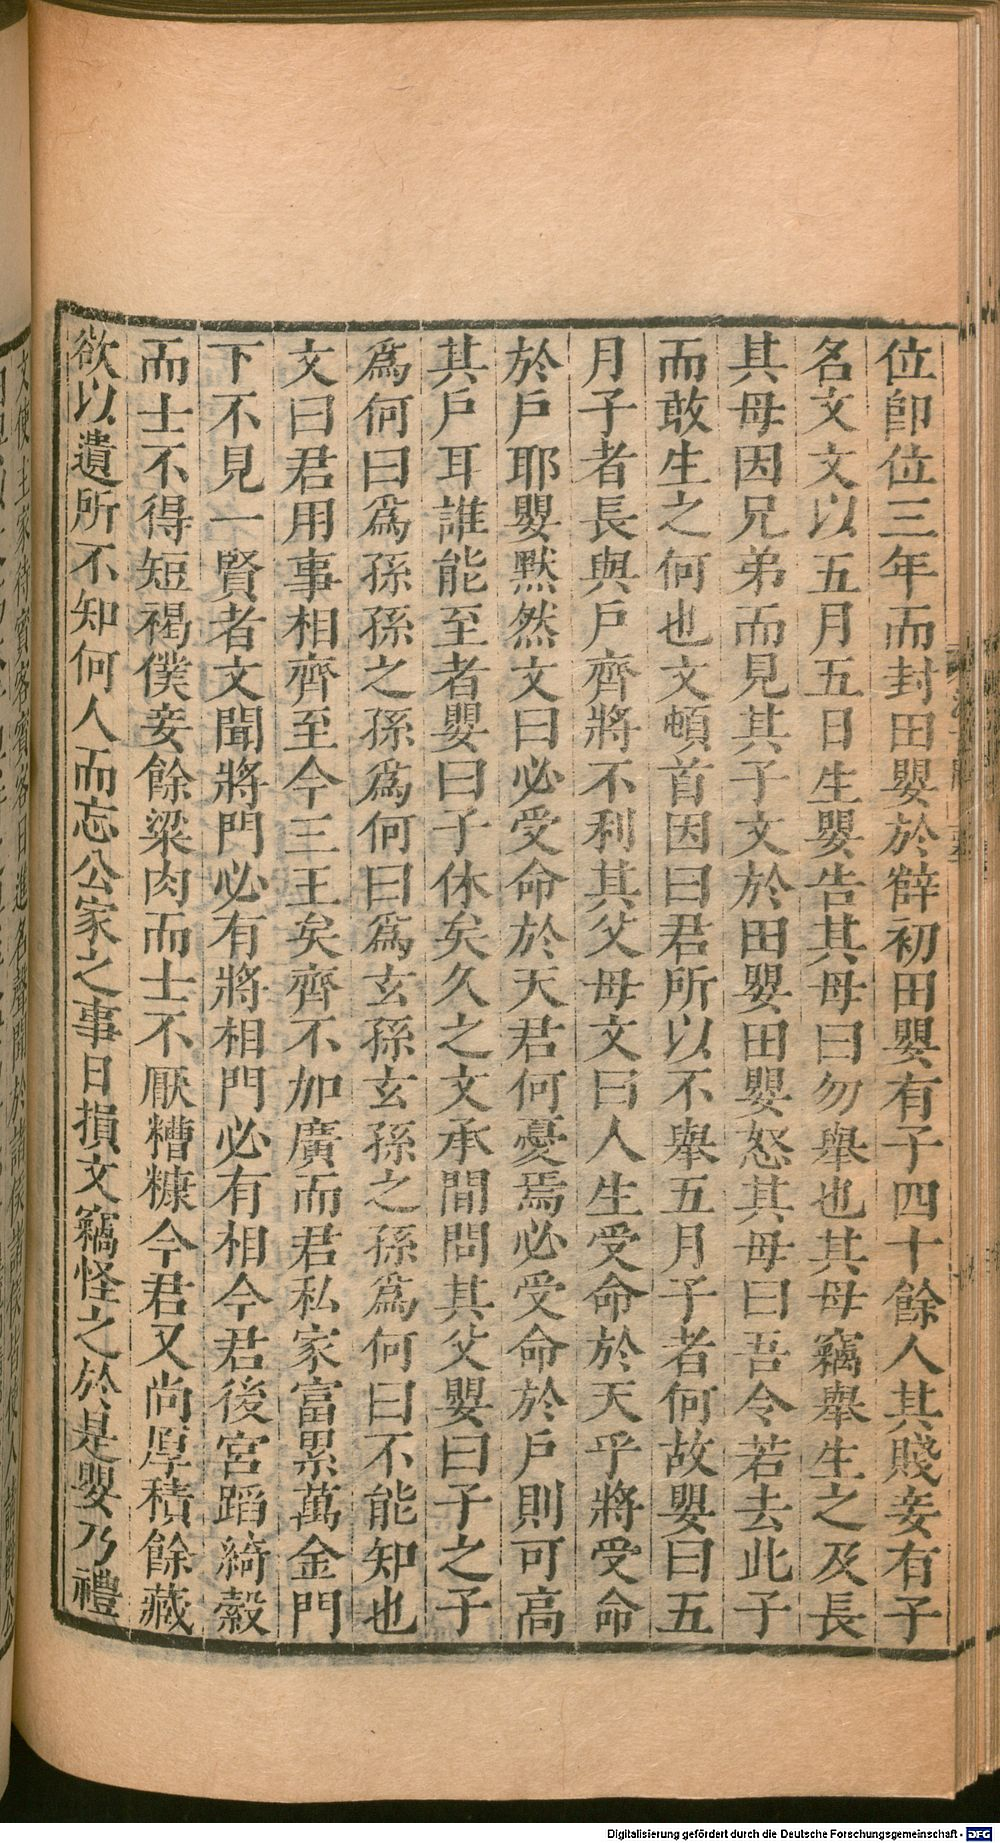 位卽位三年而封田嬰於薛初田嬰有子四十餘人其賤妾有子
名文文以五月五日生嬰告其母曰勿舉也其母竊舉生之及長
其母因兄弟而見其子文於田嬰田嬰怒其母曰吾令若去此子
而敢生之何也文頓首因曰君所以不舉五月子者何故嬰曰五
月子者長與戶齊將不利其父母文曰人生受命於天乎將受命
於戶耶嬰默然文曰必受命於天君何憂焉必受命於戶則可高
其戶耳誰能至者嬰曰子休矣久之文承間問其父嬰曰子之子
爲何曰爲孫孫之孫爲何曰爲玄孫玄孫之孫爲何曰不能知也
文曰君用事相齊至今三王矣齊不加廣而君私家富累萬金門
下不見一賢者文聞將門必有將相門必有相今君後宮蹈綺縠
而士不得短褐僕妾餘粱肉而士不厭糟糠今君又尚厚積餘藏
欲以遺所不知何人而忘公家之事日損文竊怪之於是嬰乃禮
文使主家待賓客賓客日進名聲聞於諸侯諸侯皆使人
Digitalisierung gefördert durch die Deutsche Forschungsgemeinschaft - DFG